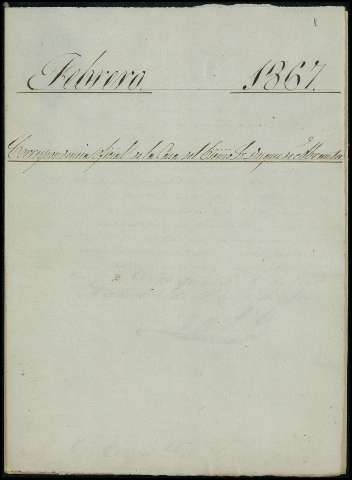 1
Febrero. 1867.
Correspondencia oficial de la Casa del Excmo Sr. Duque de Abrantes